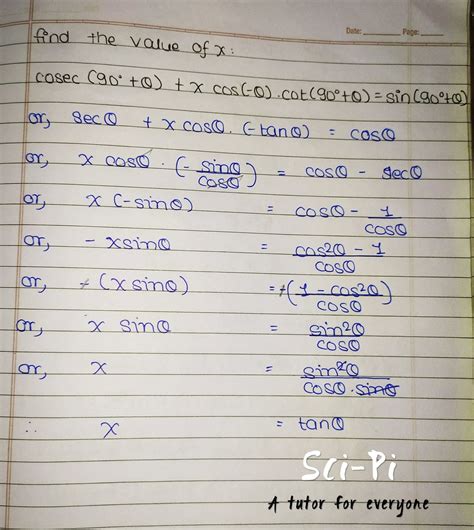 Date: Page:
find the value of x:
cosec (90° + θ) + x cos(-θ) . cot(90° + θ) = sin(90° + θ)
or, secθ + x cosθ . (-tanθ) = cosθ
or, x cosθ . (- sinθ/cosθ) = cosθ - secθ
or, x (-sinθ) = cosθ - 1/cosθ
or, - x sinθ = cos²θ - 1/cosθ
or, ≁ (x sinθ) = ≁ (1 - cos²θ/cosθ)
or, x sinθ = sin²θ/cosθ
or, x = sin²θ/cosθ . sinθ
∴ x = tanθ
Sci-Pi
A tutor for everyone